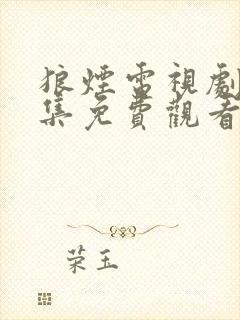 狼煙電視劇
集免費觀看
荣玉